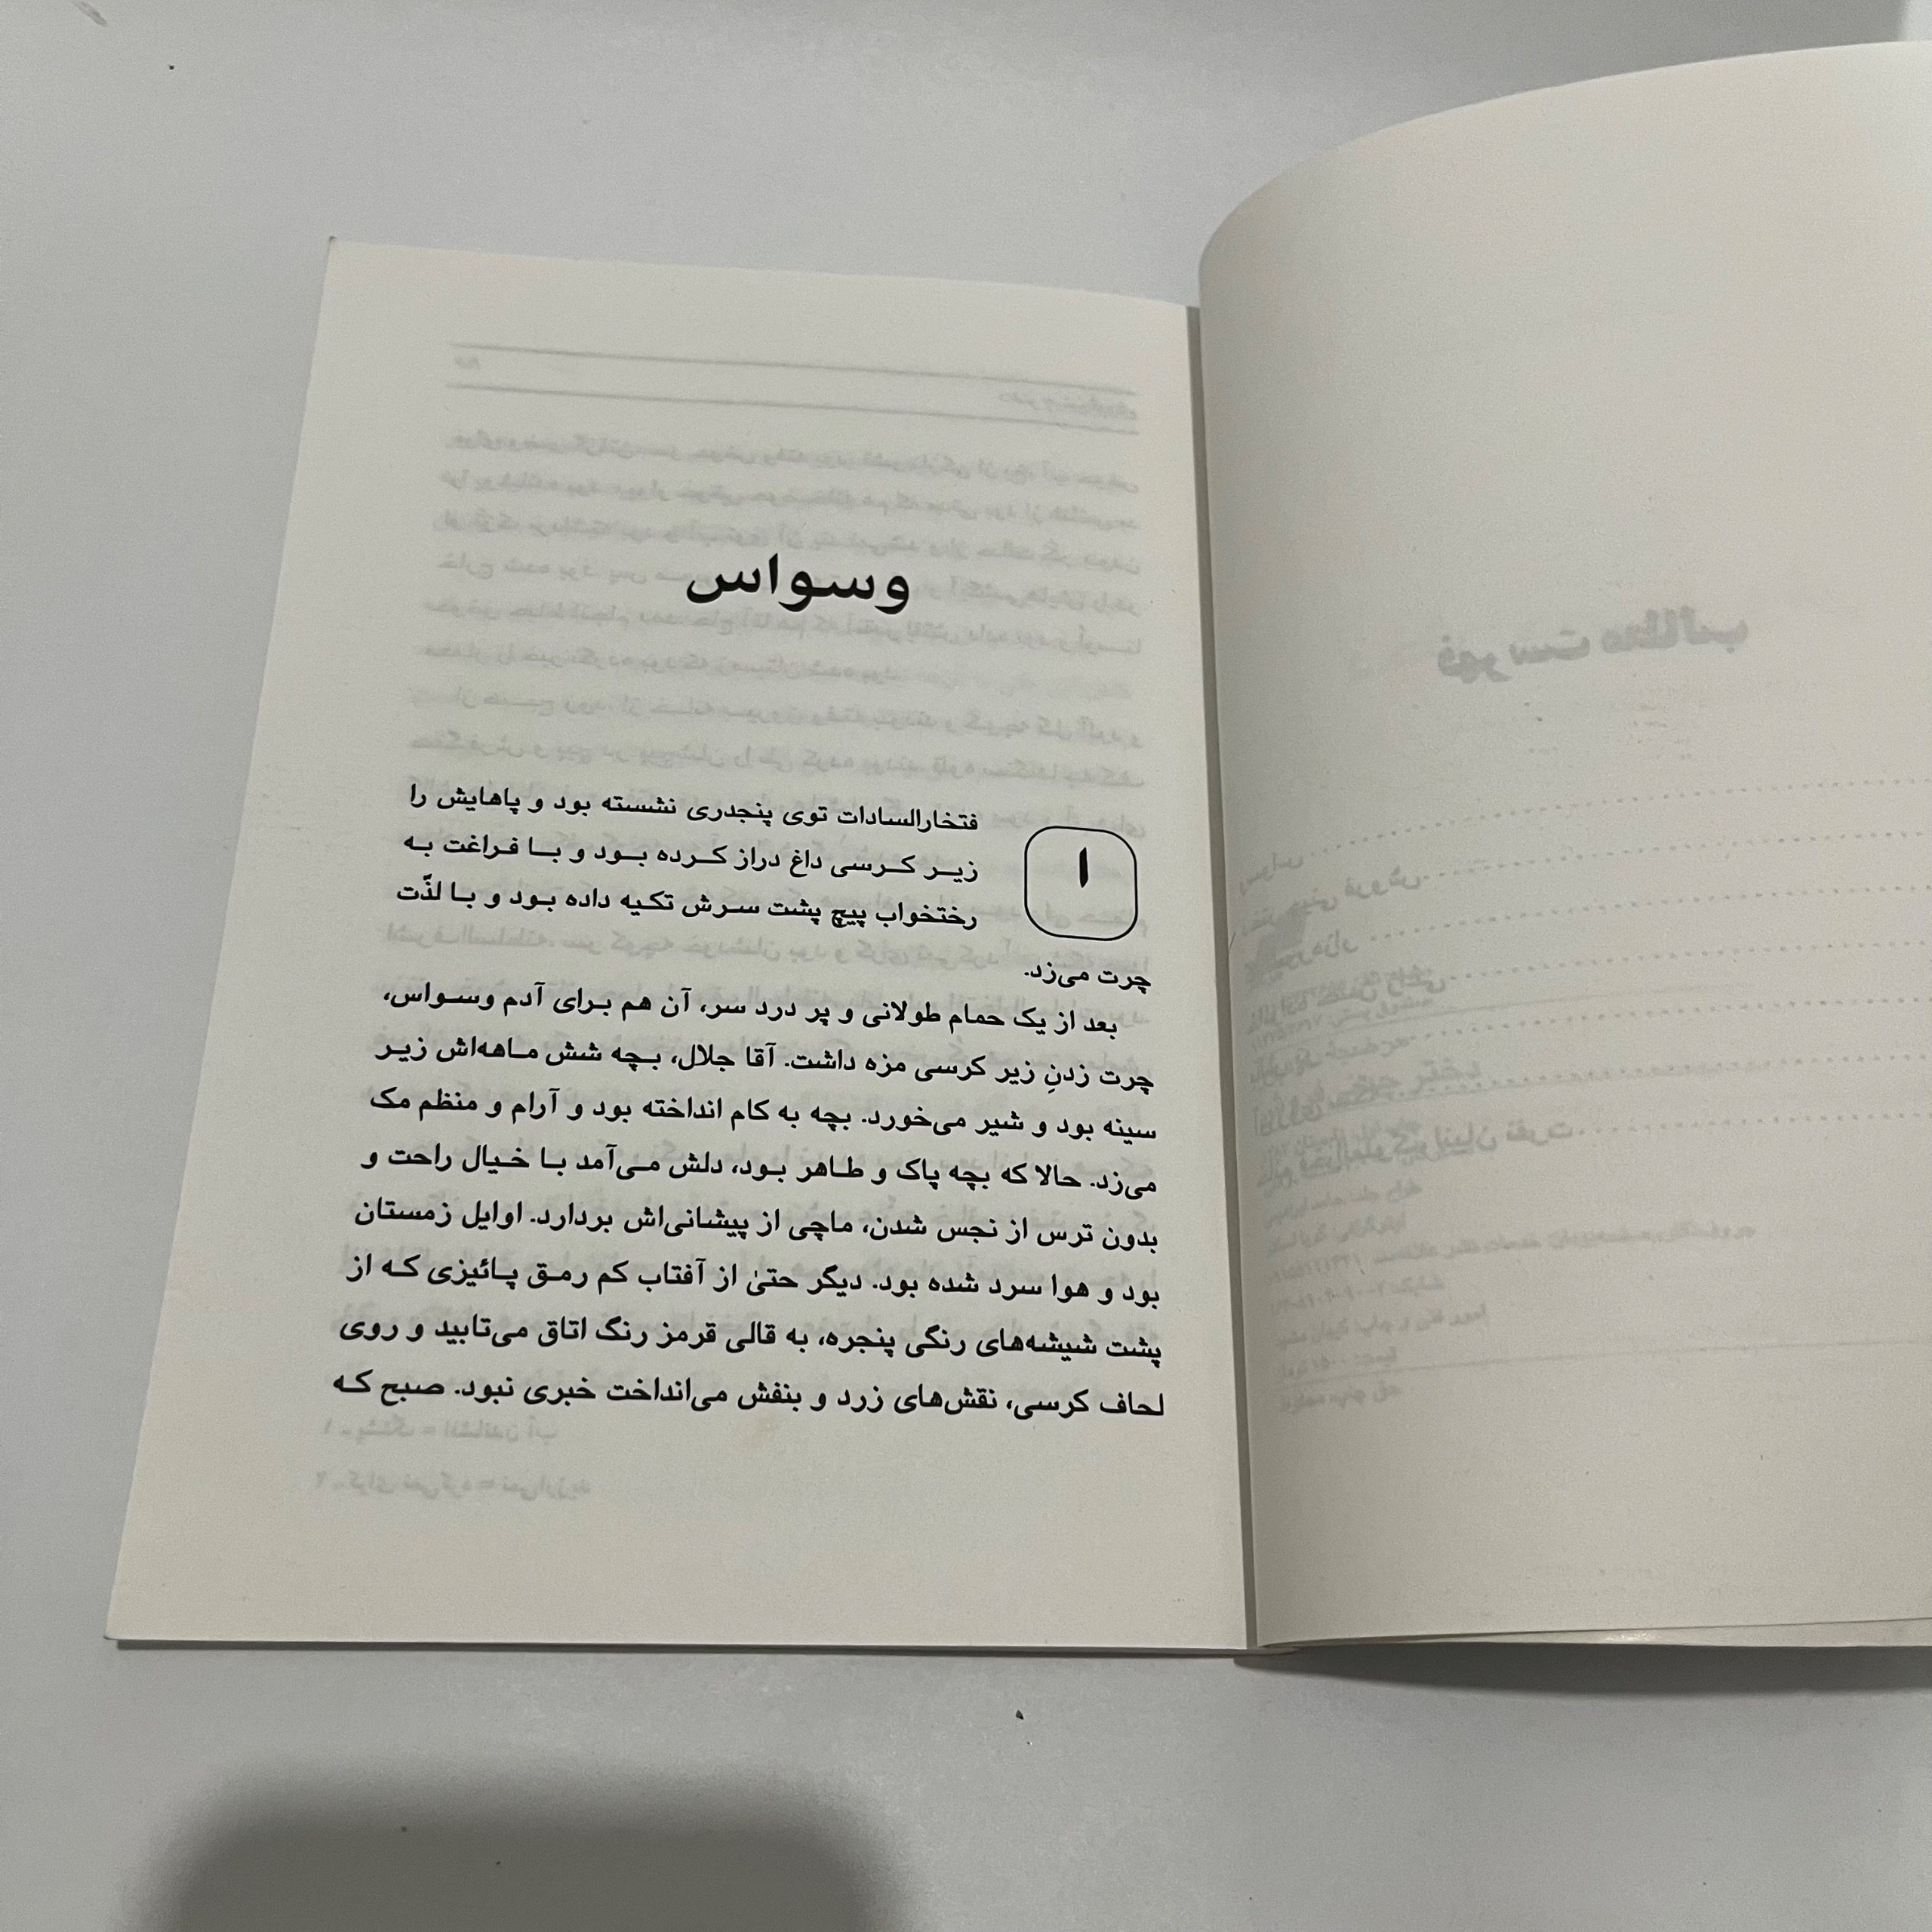 وسواس
۱
فتخارالسادات توی پنجدری نشسته بود و پاهایش را
زیر کرسی داغ دراز کرده بود و با فراغت به
رختخواب پیچ پشت سرش تکیه داده بود و با لذّت
چرت می‌زد.
بعد از یک حمام طولانی و پر درد سر، آن هم برای آدم وسواس،
چرت زدنِ زیر کرسی مزه داشت. آقا جلال، بچه شش ماهه‌اش زیر
سینه بود و شیر می‌خورد. بچه به کام انداخته بود و آرام و منظم مک
می‌زد. حالا که بچه پاک و طاهر بود، دلش می‌آمد با خیال راحت و
بدون ترس از نجس شدن، ماچی از پیشانی‌اش بردارد. اوایل زمستان
بود و هوا سرد شده بود. دیگر حتیٰ از آفتاب کم رمق پائیزی که از
پشت شیشه‌های رنگی پنجره، به قالی قرمز رنگ اتاق می‌تابید و روی
لحاف کرسی، نقش‌های زرد و بنفش می‌انداخت خبری نبود. صبح که